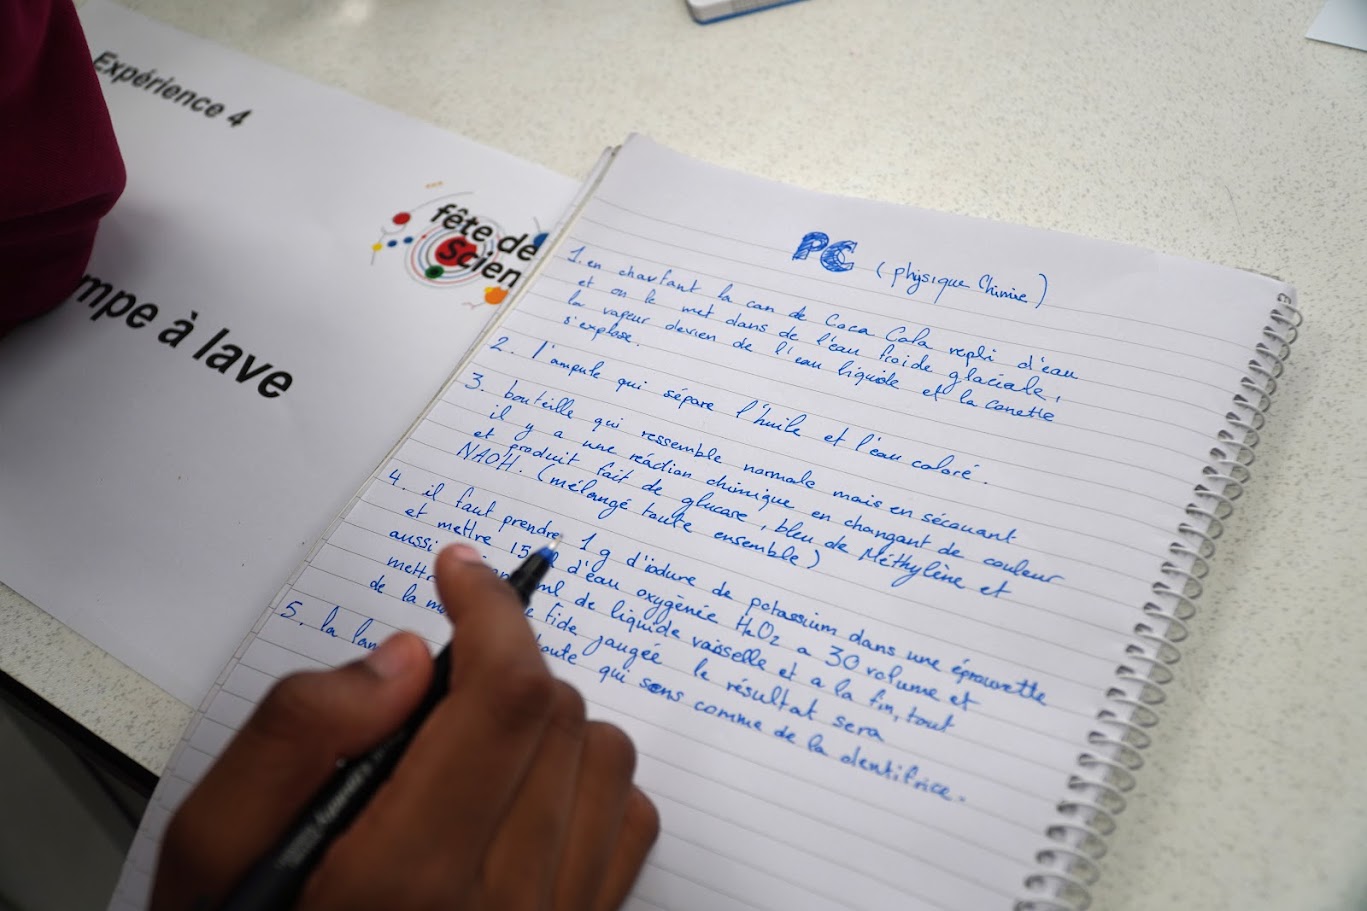 Expérience 4
fête de
Scien
mpe à lave
PC (physique Chimie)
1. en chauffant la can de Coca Cola repli d'eau
et on le met dans de l'eau froide glaciale,
la vapeur devien de l'eau liquide et la canette
s'explose.
2. l'ampute qui sépare l'huile et l'eau coloré.
3. bouteille qui ressemble normale mais en sécouant
il y a une réaction chimique en changant de couleur
et produit fait de glucose, bleu de Méthylène et
NAOH. (mélangé toute ensemble)
4. il faut prendre 1g d'iodure de potassium dans une éprouvette
et mettre 15 d'eau oxygènée H2O2 a 30 volume et
aussi ml de liquide vaisselle et a la fin, tout
mettre fide jaugée le résultat sera
de la toute qui sens comme de la dentifrice.
5. la